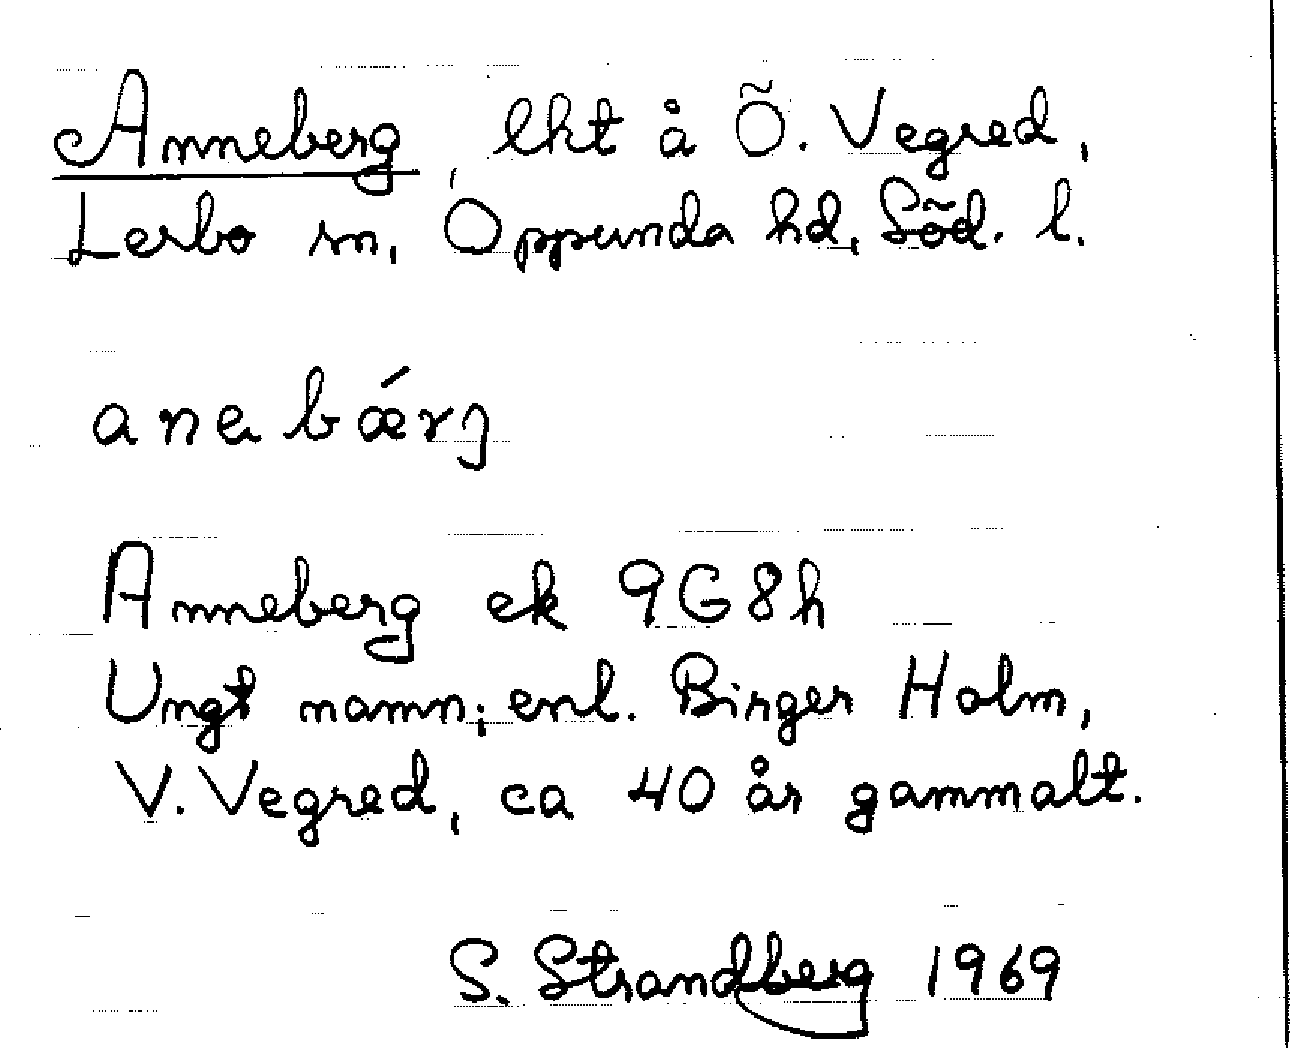 Anneberg, lht å Õ. Vegred,
Lerbo sn, Oppunda hd, Sõd. l.
anebǽrj
Anneberg ek 9G8h
Ungt namn; enl. Birger Holm,
V. Vegred, ca 40 år gammalt.
S. Strandberg 1969